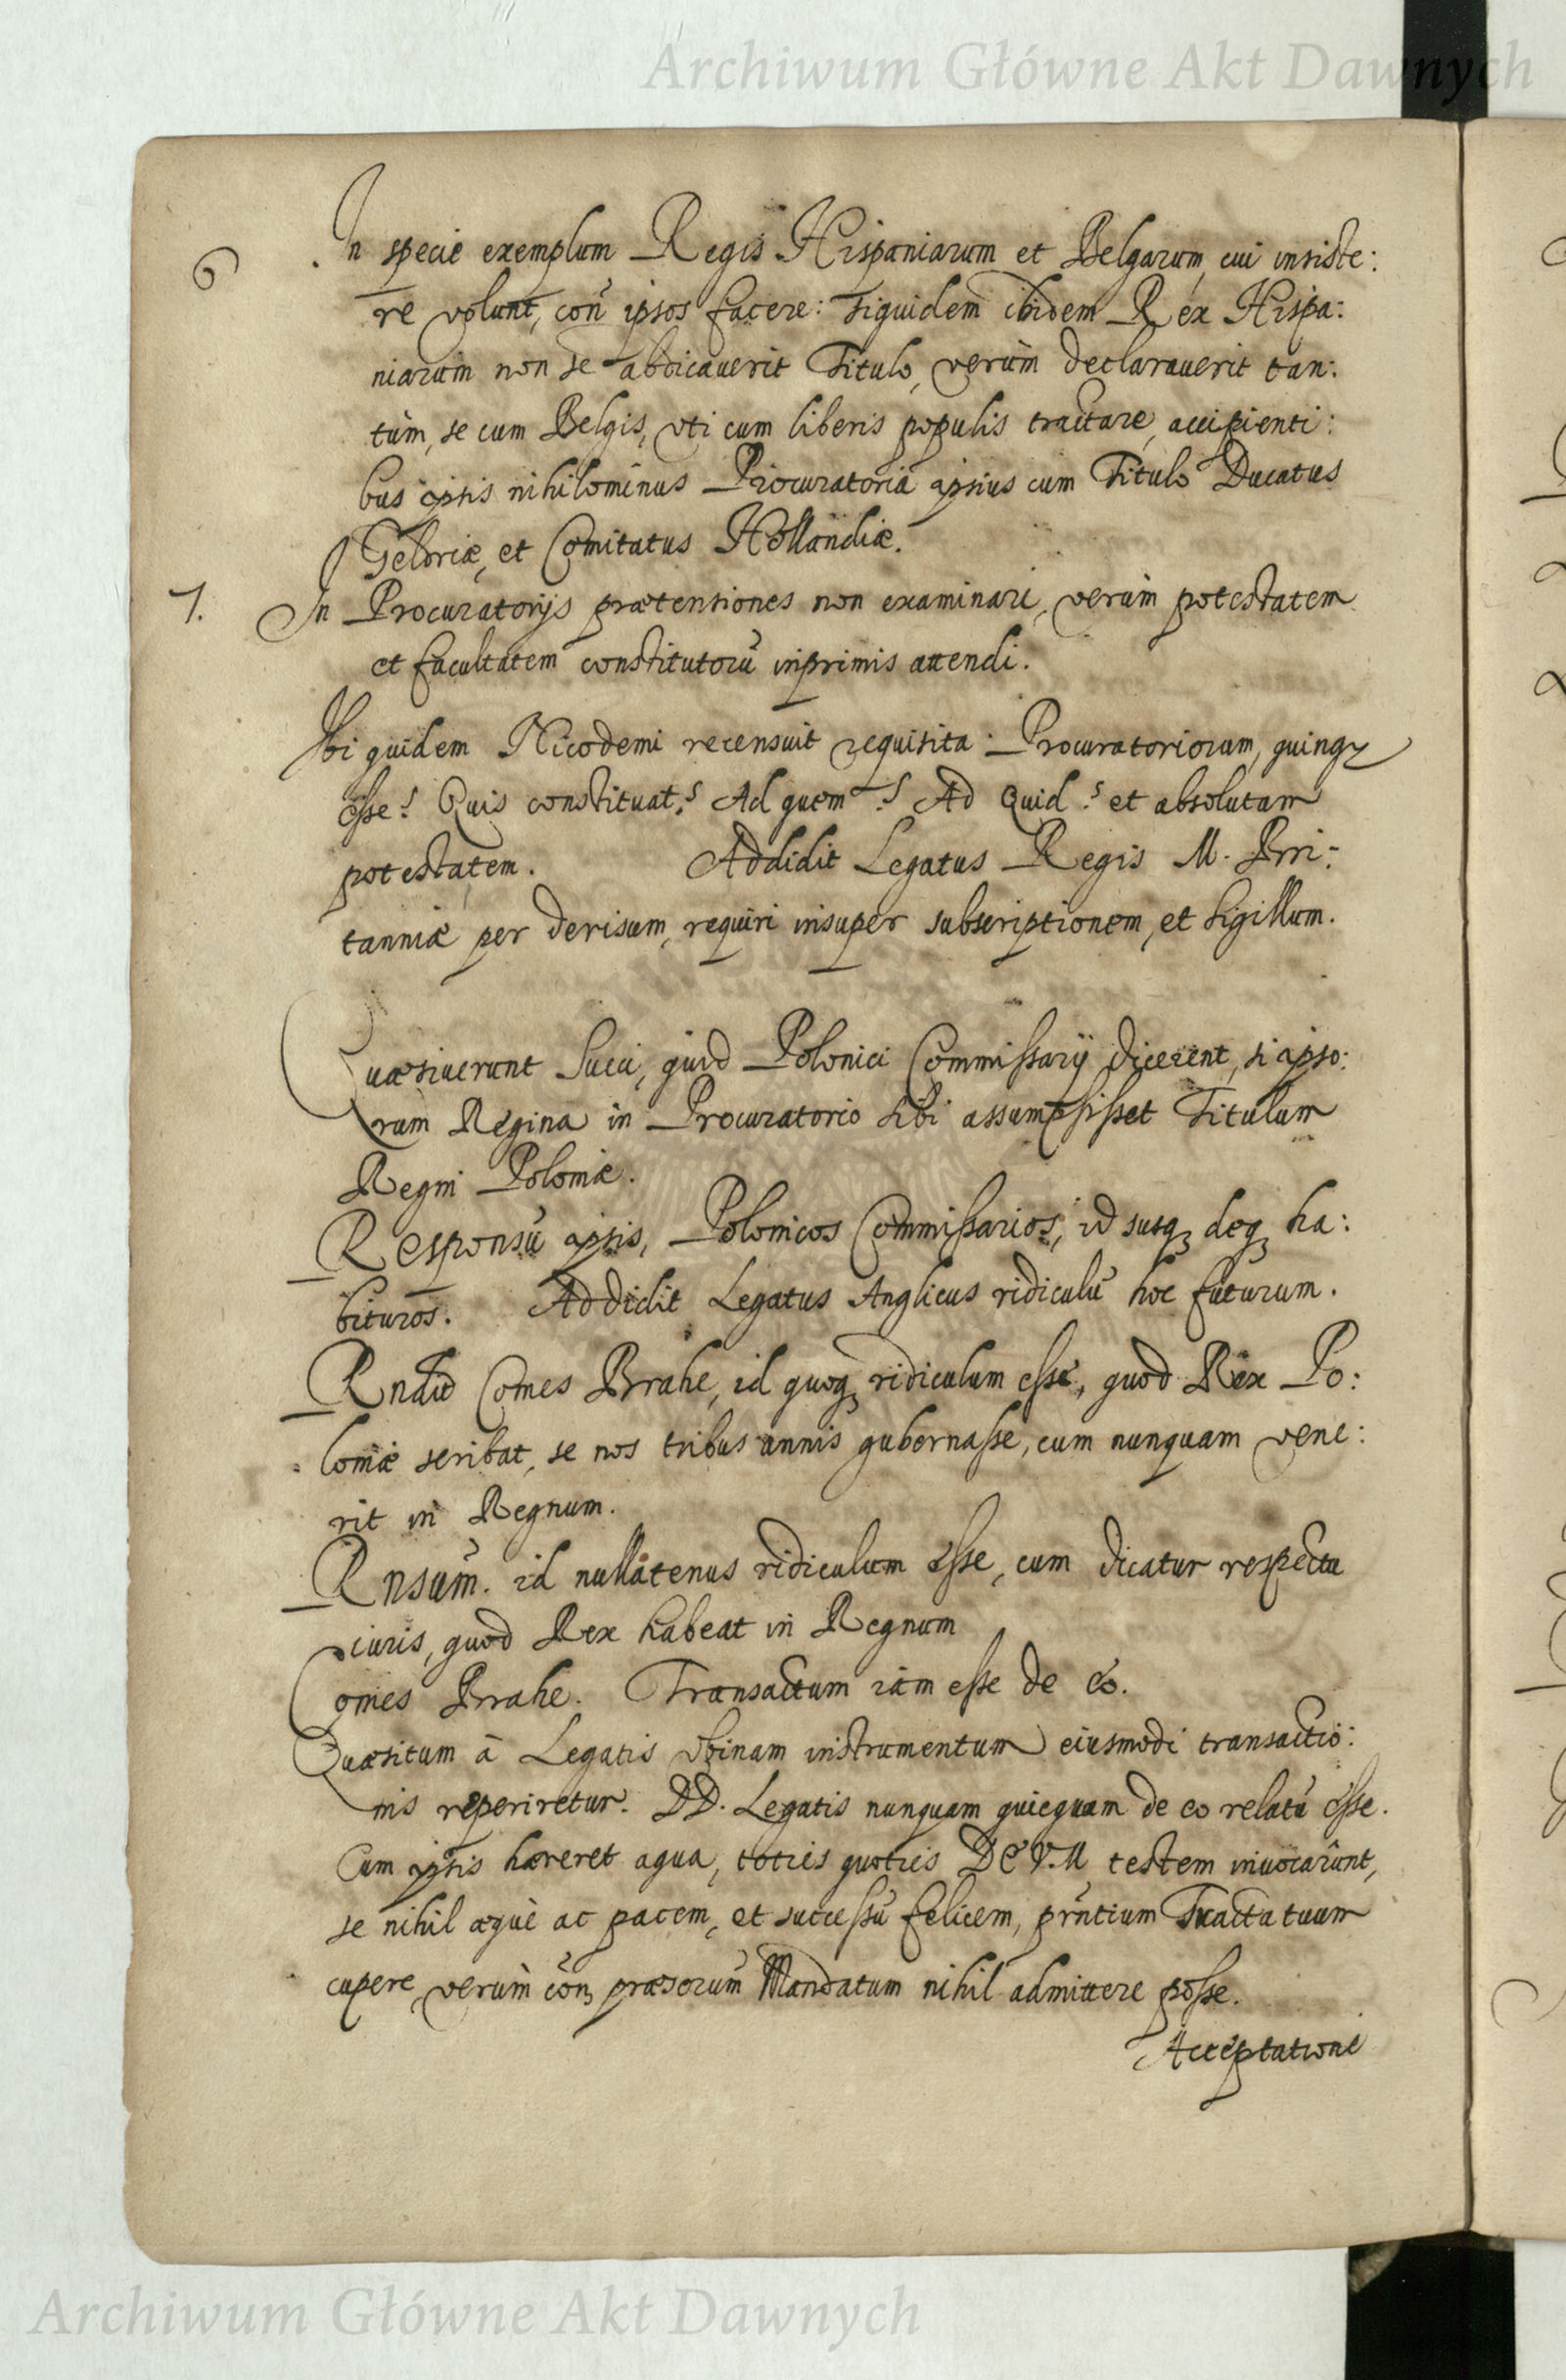 Archiwum Główne Akt Dawnych
6 In specie exemplum Regis Hispaniarum et Belgarum, cui insiste:
re volunt, con̄ ipsos facere: siquidem ibidem Rex Hispa:
niarum non se abdicauerit Titulo, verùm declarauerit tan:
tùm, se cum Belgis, vti cum liberis populis tractare, accipienti:
bus ipsis nihilominus Procuratoria ipsius cum Titulo Ducatus
Geldriæ, et Comitatus Hollandiæ.
7. In Procuratorijs prætensiones non examinari, verùm potestatem
et facultatem constitutorū inprimis attendi.
Ibi quidem Nicodemi recensuit requisita Procuratoriorum, quinqȝ
esse? Quis constituat? Ad quem? Ad Quid? et absolutam
potestatem. Addidit Legatus Regis M. Bri:
tanniæ per derisum, requiri insuper subscriptionem, et sigillum.
Quæsiuerunt Sueci, quid Polonici Commissarij dicerent, si ipso:
rum Regina in Procuratorio sibi assumpsisset Titulum
Regni Poloniæ.
Responsū ipsis, Polonicos Commissarios, id susqȝ deqȝ ha:
bituros. Addidit Legatus Anglicus ridiculū hoc futurum.
Rndit Comes Brahe, id quoqȝ ridiculum esse, quod Rex Po:
loniæ scribat, se nos tribus annis gubernasse, cum nunquam vene:
rit in Regnum.
Rnsum̄. id nullatenus ridiculum esse, cum dicatur respectu
iuris, quod Rex habeat in Regnum
Comes Brahe. Transactum iam esse de eo.
Quæsitum à Legatis vbinam instrumentum eiusmodi transactio:
nis reperiretur. DD. Legatis nunquam quicquam de eo relatū esse.
Cum ipsis hæreret aqua, toties quoties DEVM testem inuocarûnt,
se nihil æquè ac pacem, et successū felicem, prn̄tium Tractatuum
cupere, verùm con̄ præsorum Mandatum nihil admittere posse.
Acceptatione
Archiwum Główne Akt Dawnych